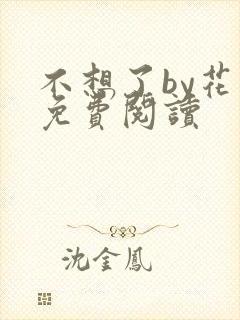 不想了by花
免費閱讀
沈金鳳